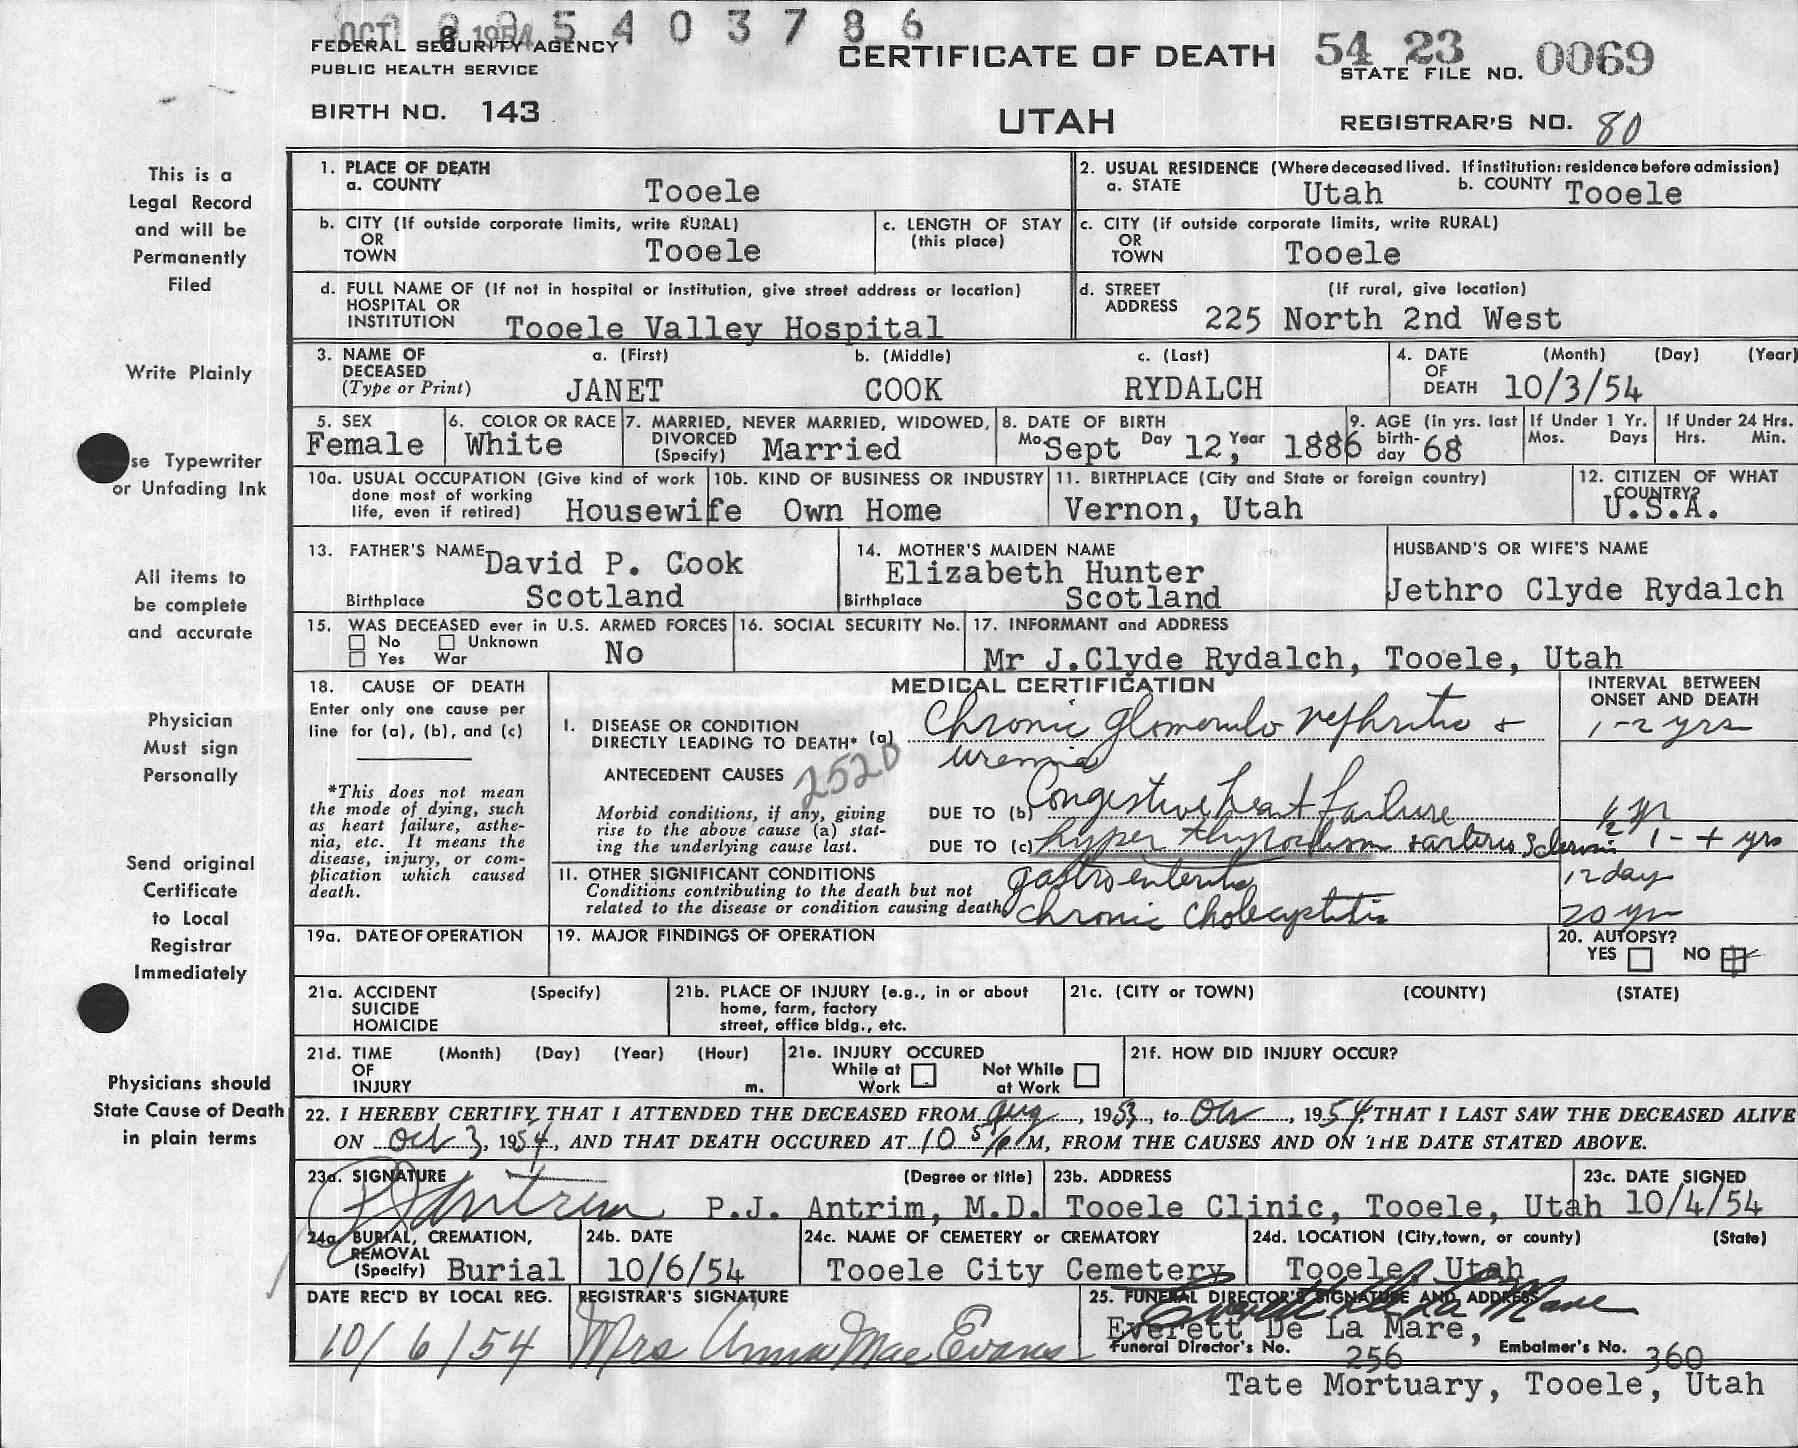 OCT 8 1954
5 4 0 3 7 8 6
FEDERAL SECURITY AGENCY
PUBLIC HEALTH SERVICE
CERTIFICATE OF DEATH
54 23 0069
STATE FILE NO.
BIRTH NO. 143
UTAH
REGISTRAR'S NO. 80
This is a
Legal Record
and will be
Permanently
Filed
Write Plainly
se Typewriter
or Unfading Ink
All items to
be complete
and accurate
Physician
Must sign
Personally
Send original
Certificate
to Local
Registrar
Immediately
Physicians should
State Cause of Death
in plain terms
1. PLACE OF DEATH
a. COUNTY Tooele
2. USUAL RESIDENCE (Where deceased lived. If institution: residence before admission)
a. STATE Utah b. COUNTY Tooele
b. CITY (If outside corporate limits, write RURAL)
OR
TOWN Tooele
c. LENGTH OF STAY
(this place)
c. CITY (if outside corporate limits, write RURAL)
OR
TOWN Tooele
d. FULL NAME OF (If not in hospital or institution, give street address or location)
HOSPITAL OR
INSTITUTION Tooele Valley Hospital
d. STREET (If rural, give location)
ADDRESS 225 North 2nd West
3. NAME OF DECEASED
(Type or Print)
a. (First) b. (Middle) c. (Last)
JANET COOK RYDALCH
4. DATE OF DEATH (Month) (Day) (Year)
10/3/54
5. SEX
Female
6. COLOR OR RACE
White
7. MARRIED, NEVER MARRIED, WIDOWED,
DIVORCED
(Specify) Married
8. DATE OF BIRTH
Mo. Sept Day 12, Year 1886
9. AGE (in yrs. last
birth-
day 68
If Under 1 Yr.
Mos. Days
If Under 24 Hrs.
Hrs. Min.
10a. USUAL OCCUPATION (Give kind of work
done most of working
life, even if retired) Housewife
10b. KIND OF BUSINESS OR INDUSTRY
Own Home
11. BIRTHPLACE (City and State or foreign country)
Vernon, Utah
12. CITIZEN OF WHAT
COUNTRY?
U.S.A.
13. FATHER'S NAME David P. Cook
Birthplace Scotland
14. MOTHER'S MAIDEN NAME
Elizabeth Hunter
Birthplace Scotland
HUSBAND'S OR WIFE'S NAME
Jethro Clyde Rydalch
15. WAS DECEASED ever in U.S. ARMED FORCES
No Unknown
Yes War No
16. SOCIAL SECURITY No.
17. INFORMANT and ADDRESS
Mr J.Clyde Rydalch, Tooele, Utah
18. CAUSE OF DEATH
Enter only one cause per
line for (a), (b), and (c)
*This does not mean
the mode of dying, such
as heart failure, asthe-
nia, etc. It means the
disease, injury, or com-
plication which caused
death.
MEDICAL CERTIFICATION
INTERVAL BETWEEN
ONSET AND DEATH
I. DISEASE OR CONDITION
DIRECTLY LEADING TO DEATH* (a) Chronic glomerulo nephritis +
uremia
1-2 yrs
ANTECEDENT CAUSES 2520
Morbid conditions, if any, giving
rise to the above cause (a) stat-
ing the underlying cause last.
DUE TO (b) Congestive heart failure
1/2 yr
DUE TO (c) hyper thyroidism + arterio Sclerosis 1-+ yrs
11. OTHER SIGNIFICANT CONDITIONS
Conditions contributing to the death but not
related to the disease or condition causing death
gastroenteritis 12 day
Chronic Cholecystitis 20 yr
19a. DATE OF OPERATION
19. MAJOR FINDINGS OF OPERATION
20. AUTOPSY?
YES NO
21a. ACCIDENT (Specify)
SUICIDE
HOMICIDE
21b. PLACE OF INJURY (e.g., in or about
home, farm, factory
street, office bldg., etc.
21c. (CITY or TOWN) (COUNTY) (STATE)
21d. TIME (Month) (Day) (Year) (Hour)
OF
INJURY m.
21e. INJURY OCCURED
While at Work Not While at Work
21f. HOW DID INJURY OCCUR?
22. I HEREBY CERTIFY THAT I ATTENDED THE DECEASED FROM Aug, 1953, to Oct, 1954, THAT I LAST SAW THE DECEASED ALIVE
ON Oct 3, 1954, AND THAT DEATH OCCURED AT 10 5 P M, FROM THE CAUSES AND ON THE DATE STATED ABOVE.
23a. SIGNATURE (Degree or title)
PJ Antrim P.J. Antrim, M.D.
23b. ADDRESS
Tooele Clinic, Tooele, Utah
23c. DATE SIGNED
10/4/54
24a. BURIAL, CREMATION,
REMOVAL
(Specify) Burial
24b. DATE
10/6/54
24c. NAME OF CEMETERY or CREMATORY
Tooele City Cemetery
24d. LOCATION (City,town, or county) (State)
Tooele, Utah
DATE REC'D BY LOCAL REG.
10/6/54
REGISTRAR'S SIGNATURE
Mrs Anna Mae Evans
25. FUNERAL DIRECTOR'S SIGNATURE AND ADDRESS
Everett De La Mare
Everett De La Mare,
Funeral Director's No. 256 Embalmer's No. 360
Tate Mortuary, Tooele, Utah